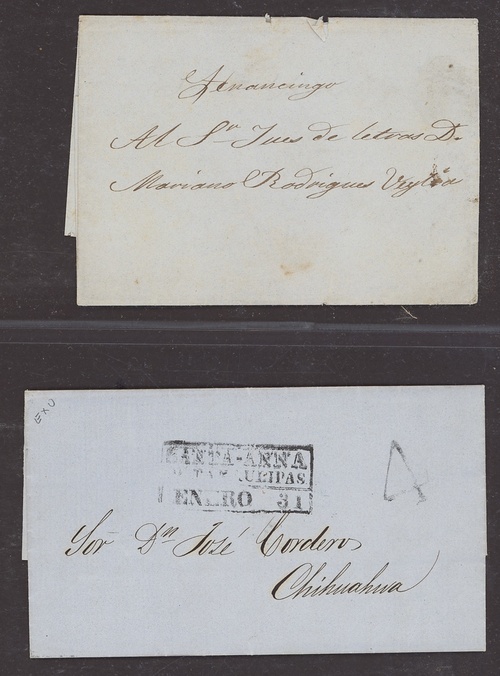 Tenancingo
Al Sr Jues de letras D.
Mariano Rodrigues Veytia
EXU
SANTA-ANNA
DE TAMAULIPAS
ENERO 31
4
Sor Dn José Cordero
Chihuahua